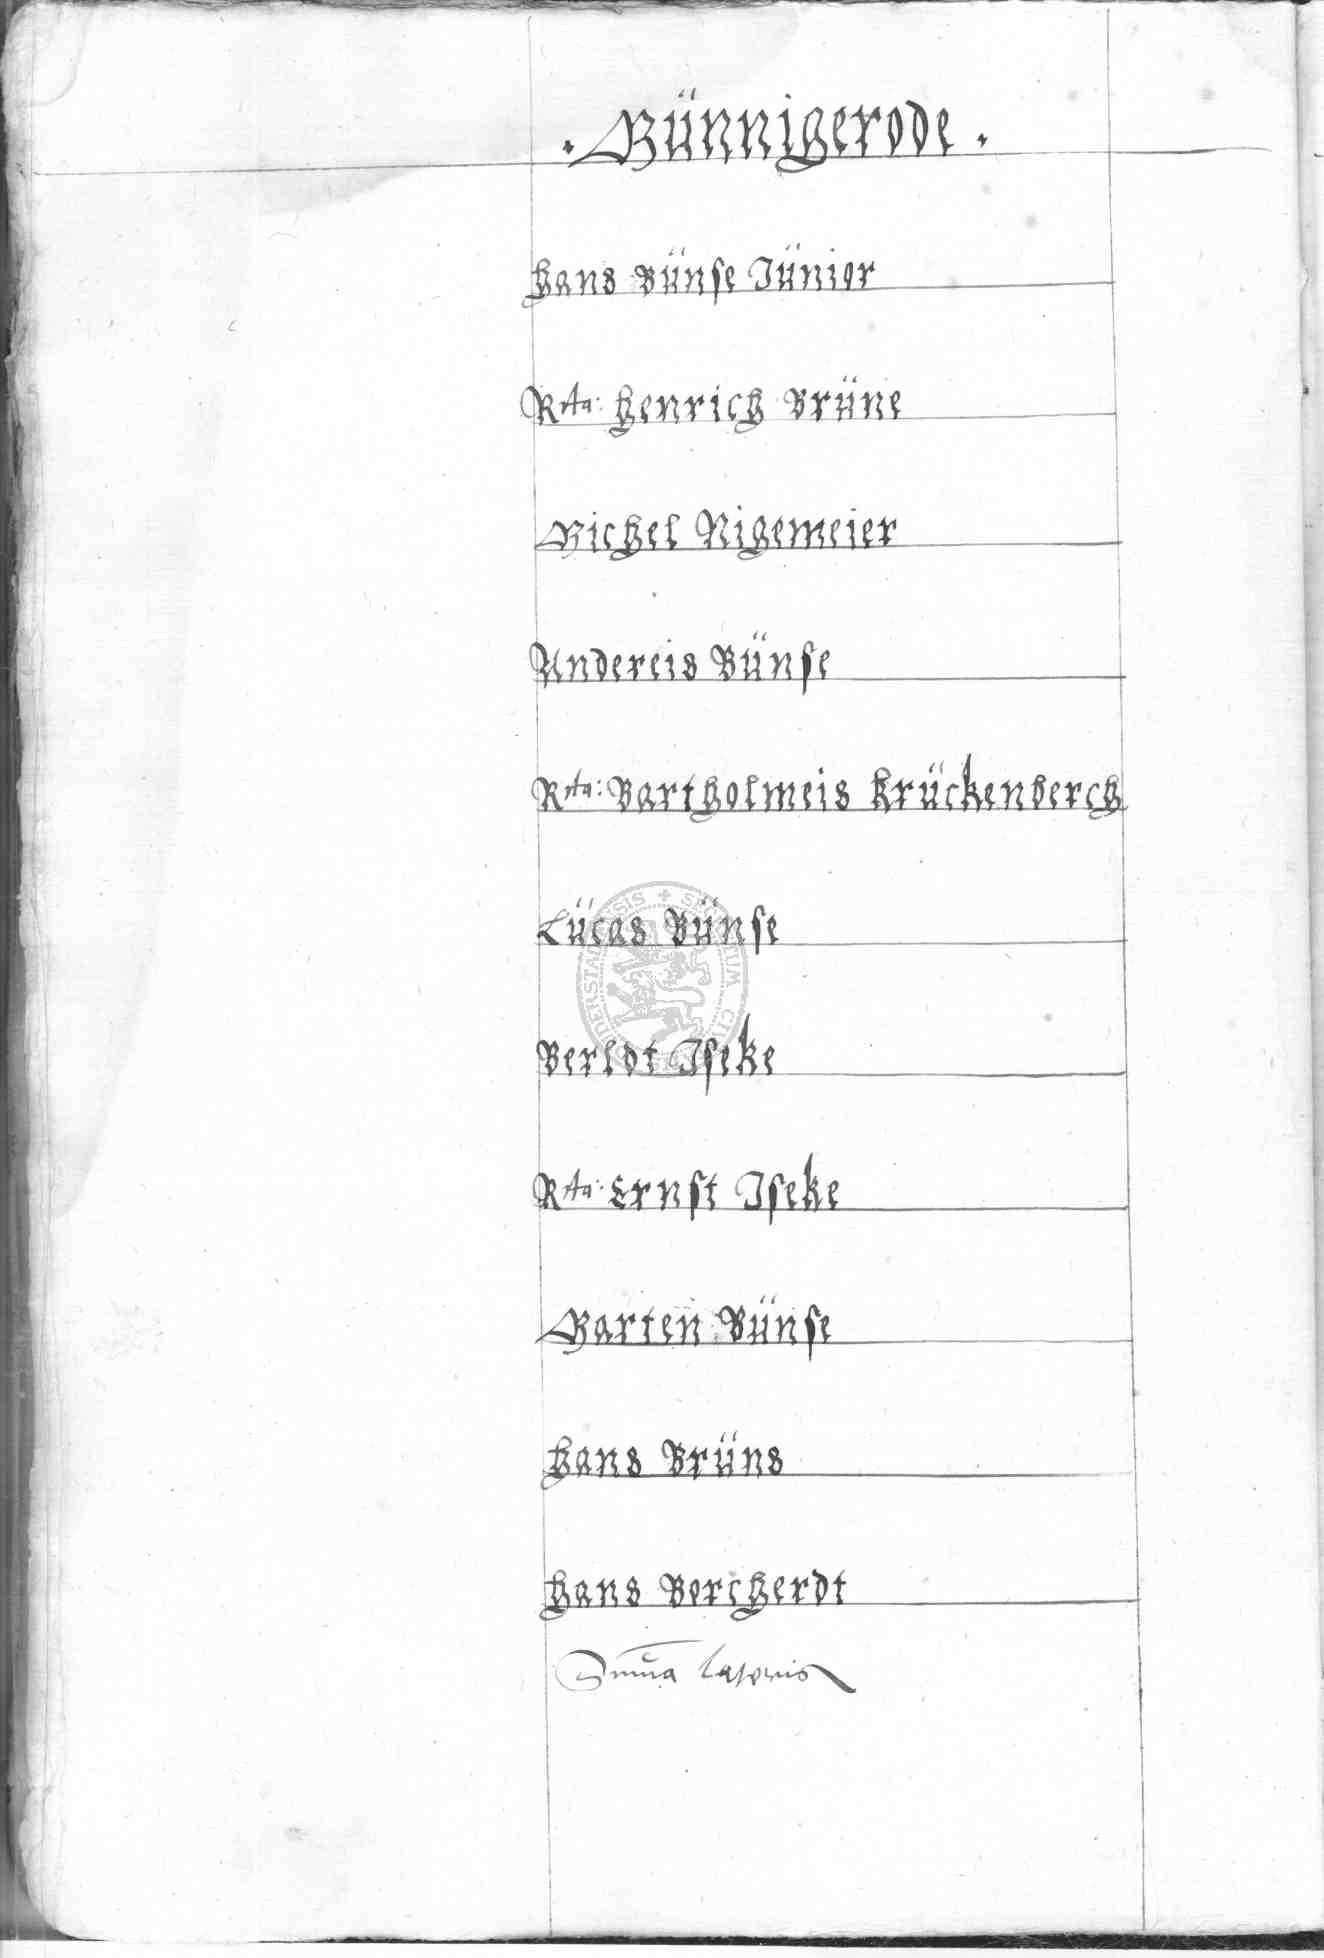 . Münnigerode .
Hans Bünse Jünior
Rta: Henrich Brüne
Michel Nigemeier
Andereis Bünse
Rta: Bartholmeis Krückenberch
Lücas Bünse
Berldt Iseke
Rta: Ernst Iseke
Marten Bünse
Hans Brüns
Hans Borcherdt
Suma lateris